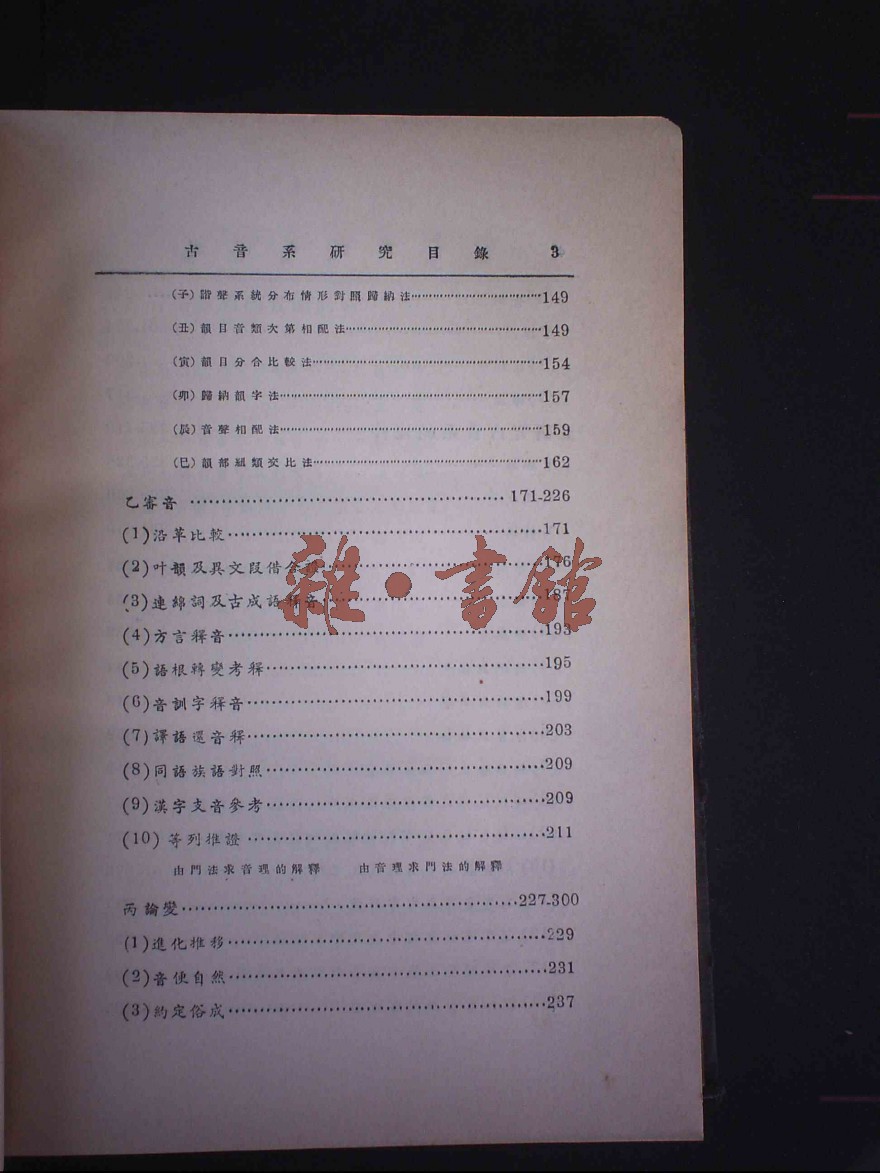 古音系研究目錄 3
(子)諧聲系統分布情形對照歸納法………149
(丑)韻目音類次第相配法………149
(寅)韻目分合比較法………154
(卯)歸納韻字法………157
(辰)音聲相配法………159
(巳)韻部紐類交比法………162
乙審音………171-226
(1)沿革比較………171
(2)叶韻及異文叚借………176
(3)連綿詞及古成語釋音………187
(4)方言釋音………193
(5)語根轉變考釋………195
(6)音訓字釋音………199
(7)譯語還音釋………203
(8)同語族語對照………209
(9)漢字支音參考………209
(10)等列推證………211
由門法求音理的解釋 由音理求門法的解釋
丙論變………227-300
(1)進化推移………229
(2)音便自然………231
(3)約定俗成………237
雜·書館